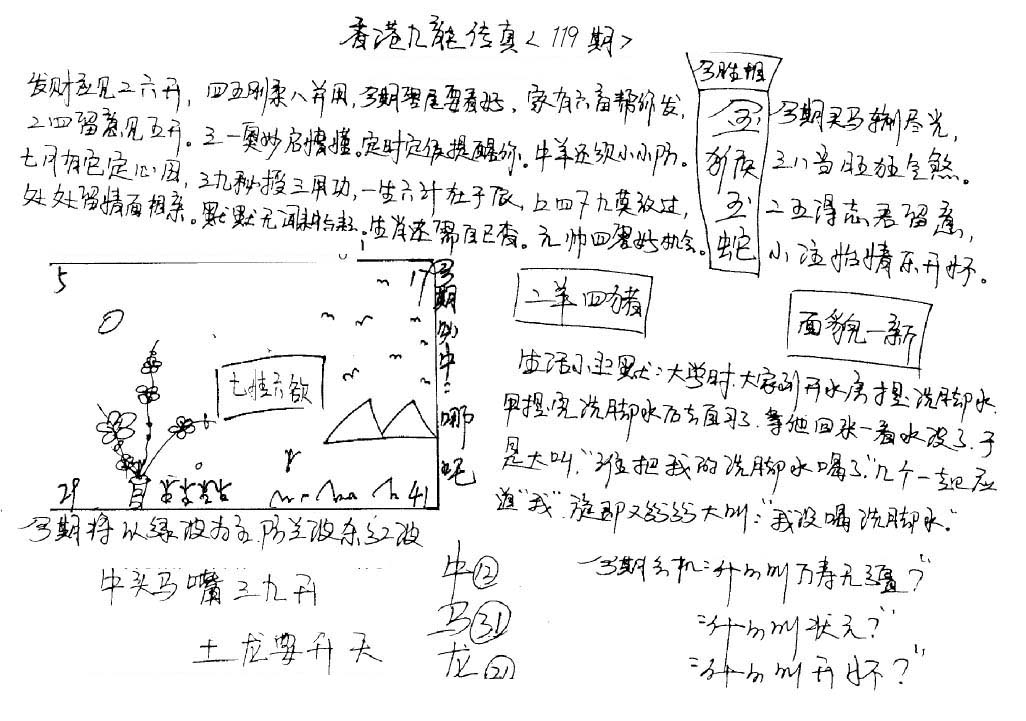 香港九龙传真<119期>
发财意见二六开，四五刚柔八前用，今期里尾要看好，家有六畜帮你发，
二四留意见五开。三一奥妙启情懂。定时定候提醒你。牛羊还须小小防。
七月有它定心因，三九秘授三用功，一生六计在于辰，上四下九莫放过，
处处留情面相亲。默默无闻。生肖还需自己查。元帅四署好机会。
今胜相
金
猴
玉
蛇
今期买马输尽光，
三八当旺狂全煞。
二五得志君留意，
小注怡情乐开怀。
5
17
29
41
七情六欲
今期贴中：哪蛇
二羊四猪
面貌一新
生活小幽默：大学时，大家到开水房提洗脚水，
甲提完洗脚水后去自习了，等他回来一看水没了，于
是大叫，“谁把我的洗脚水喝了”几个一起应
道“我”，旋即又纷纷大叫：“我没喝洗脚水。”
今期将以绿波为主，防兰波杀红波
牛头马嘴三九开
土龙要升天
牛⑫
马㉛
龙㉑
今期玄机：“什么叫万寿无疆？”
：“什么叫状元？”
：“什么叫开怀？”